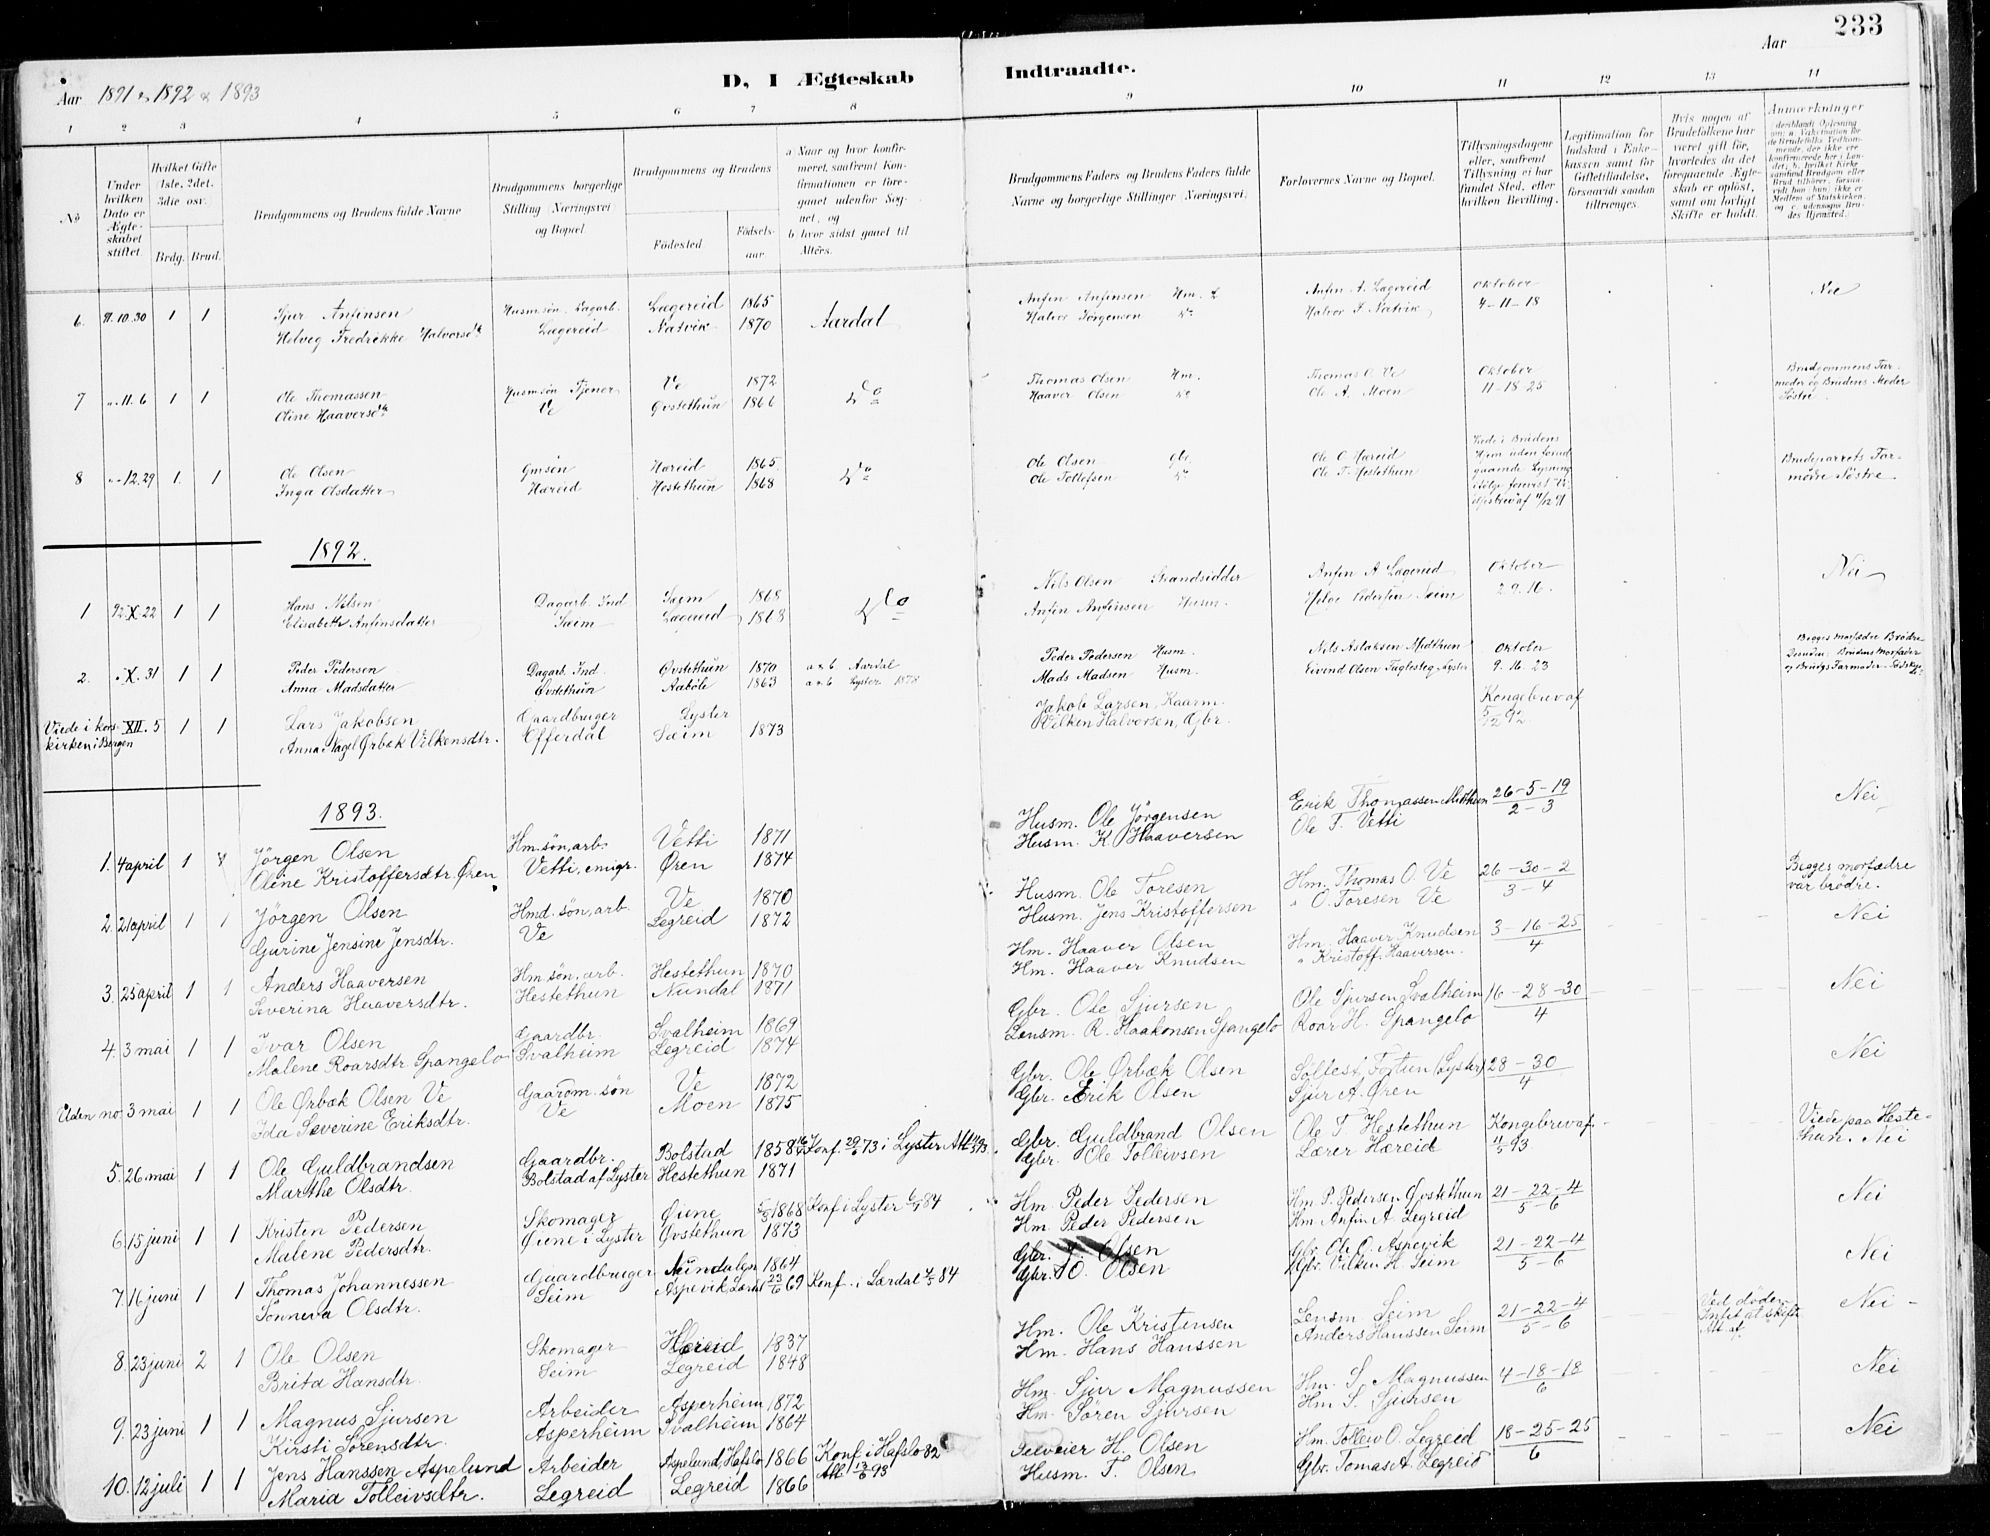 233
Aar
Aar 1891 & 1892 & 1893
D, I Ægteskab
Indtraadte.
1 2 3 4 5 6 7 8
9 10 11 12 13 14
No
Under hvilken Dato er Ægteskabet stiftet.
Hvilket Gifte 1ste, 2det, 3die osv.
Brdg. Brud.
Brudgommens og Brudens fulde Navne
Brudgommens borgerlige Stilling (Næringsvei) og Bopæl.
Brudgommens og Brudens
Födested Födsels-aar.
a Naar og hvor konfirmeret, saafremt Konfirmationen er foregaaet udenfor Sognet, og
b hvor sidst gaaet til Alters.
Brudgommens Faders og Brudens Faders fulde Navne og borgerlige Stillinger (Næringsvei).
Forlovernes Navne og Bopæl.
Tillysningsdagene eller, saafremt Tillysning ei har fundet Sted, efter hvilken Bevilling.
Legitimation for Indskud i Enkekassen samt for Giftetilladelse, forsaavidt saadan tiltrænges.
Hvis nogen af Brudefolkene har været gift før, hvorledes da det foregaaende Ægteskab er opløst, samt om lovligt Skifte er holdt.
Anmærkninger
6. 91.10.30 1 1 Sjur Anfinsen Husm.søn. Dagarb. Lægereid 1865 Aardal Anfin Anfinsen Hm. Anfin A. Lægereid Oktober Nei
Helveg Fredrikke Halvorsdtr Lægereid Natvik 1870 Halvor Jørgensen Do Halvor J. Natvik 4-11-18
7 " 11.6 1 1 Ole Thomassen Husm.søn Tjener Ve 1872 Do Thomas Olsen Hm. Thomas O. Ve Oktober Brudgommens Farmoder og Brudens Moder Søstre.
Oline Haaversdtr Ve Øvstethun 1866 Haaver Olsen Do Ole A. Moen 11-18-25
8 " 12.29 1. 1 Ole Olsen Gmsøn Hæreid 1865 Do Ole Olsen Gbr. Ole O. Hæreid Brudeparrets Farmødre Søstre.
Inga Olsdatter Hæreid Hestethun 1868 Ole Tollefsen Do Ole T. Hestethun
1892.
1 92.X.22 1 1 Hans Nilsen Dagarb. Ind Sæim 1868 Do Nils Olsen Strandsidder Anfin A Lægereid Oktober Nei
Elisabeth Anfinsdatter Sæim Lægereid 1868 Anfin Anfinsen Husm. Helge Pedersen Seim 2.9.16.
2. " X.31 1 1 Peder Pedersen Dagarb. Ind. Øvstethun 1870 a & b Aardal Peder Pedersen Husm. Nils Aslaksen Midthun Oktober
Anna Madsdatter Øvstethun Aabøle 1863 a & b Lyster 1878 Mads Madsen Husm. Eivind Olsen Fuglesteg Lyster 9.16.23
Viede i korskirken i Bergen XII. 5 1 1 Lars Jakobsen Gaardbruger Lyster Jakob Larsen, Kaarm. Kongebrev af
Anna Nagel Ørbæk Vilkensdtr. Efferdal Sæim 1873 Vilken Halvorsen, Gbr. 5/12 92.
1893.
1. 4 april 1 1 Jörgen Olsen Hm.søn, arb. Vetti 1871 Husm. Ole Jörgensen Erik Thomassen Midthun 26-5-19 Nei
Oline Kristoffersdtr. Øren Vetti, emigr. Øren 1874 Husm. K. Haaversen Ole T. Vetti 2-3
2. 21 april 1 1 Jörgen Olsen Hmd. søn, arb. Ve 1870 Husm. Ole Toresen Hm. Thomas O. Ve 26-30-2 Begges morfædre var brödre.
Gurine Jensine Jensdtr. Ve Legreid 1872 Husm. Jens Kristoffersen " O. Toresen Ve 3-4
3. 25 april 1 1 Anders Haaversen Hm.søn, arb. Hestethun 1870 Hm. Haaver Olsen Hm. Haaver Knudsen 3-16-25 Nei
Severina Haaversdtr. Hestethun Nundal 1871 Hm. Haaver Knudsen " Kristoff. Haaversen. 4
4. 3 mai 1 1 Ivar Olsen Gaardbr. Svalheim 1869 Gbr. Ole Sjursen Ole Sjursen Svalheim 16-28-30 Nei
Malene Roarsdtr Spangelo Svalheim Legreid 1874 Lensm. R. Haakonsen Spangelo Roar H. Spangelo 4
Uden no. 3 mai 1 1 Ole Ørbæk Olsen Ve Gaardm. søn Ve 1872 Gbr. Ole Ørbæk Olsen Solfest Fortun (Lyster) 28-30 Nei
Ida Severine Eriksdtr. Ve Moen 1875 Gbr. Erik Olsen Sjur A. Øren 4
5. 26 mai 1 1 Ole Guldbrandsen Gaardbr. Bolstad 1858 Konf. 29/6 73 i Lyster Gbr. Guldbrand Olsen Ole T. Hestethun Kongebrev af Viede paa Hestethun. Nei
Marthe Olsdtr. Bolstad af Lyster Hestethun 1871 Gbr. Ole Tolleivsen Lærer Hæreid 11/5 93.
6. 15 juni 1 1 Kristen Pedersen Skomager Øiene 1868 Konf i Lyster 84 Hm Peder Pedersen Hm P. Pedersen Øvstethun 21-22-4 Nei
Malene Pedersdtr. Øiene i Lyster Øvstethun 1873 Hm. Peder Pedersen Hm Anfin A. Legreid 5-6
7. 16 juni 1 1 Thomas Johannessen Gaardbruger Nundalen 1864 Gbr. J. Olsen Gbr. Ole O. Aspevik 21-22-4 Nei
Sönneva Olsdtr. Seim Aspevik 23/6 69 Konf. i Lærdal 84 Gbr. O. Olsen Gbr. Vilken H. Seim 5-6
8. 23 juni 2 1 Ole Olsen Skomager Hæreid 1837 Hm. Ole Kristensen Lensm. Seim 21-22-4 Ved döden. Intet at skifte. Nei
Brita Hansdtr. Seim Legreid 1848 Hm. Hans Hanssen Anders Hanssen Seim 5-6
9. 23 juni 1 1 Magnus Sjursen Arbeider Asperheim 1872 Hm. Sjur Magnussen Hm. S. Magnussen 4-18-18 Nei
Kirsti Sörensdtr. Asperheim Svalheim 1864 Hm. Sören Sjursen Hm S. Sjursen 6
10. 12 juli 1 1 Jens Hanssen Aspelund Arbeider Aspelund, Hafslo 1866 Konf. i Hafslo 82 Selveier H. Olsen Hm. Tolleiv O. Legreid 18-25-25 Nei
Maria Tolleivsdtr. Legreid Legreid 1866 Alt. 13/6 93 Husm. T. Olsen Gbr. Tomas A. Legreid 6